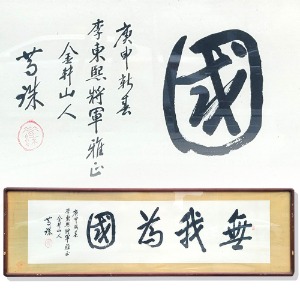 國
庚申新春
李東熙將軍雅正
金井山人
珠
無我為國
庚申新春
李東熙將軍雅正
金井山人
珠